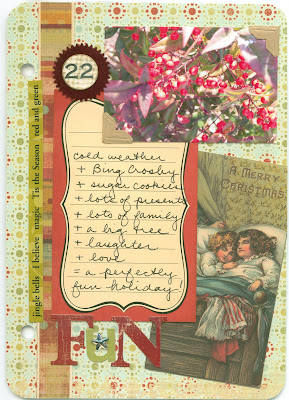 22
cold weather
+ Bing Crosby
+ sugar cookies
+ lots of presents
+ lots of family
+ a big tree
+ laughter
+ love
= a perfectly
fun holiday
A MERRY
CHRISTMAS
jingle bells I believe magic 'Tis the Season red and green
FuN